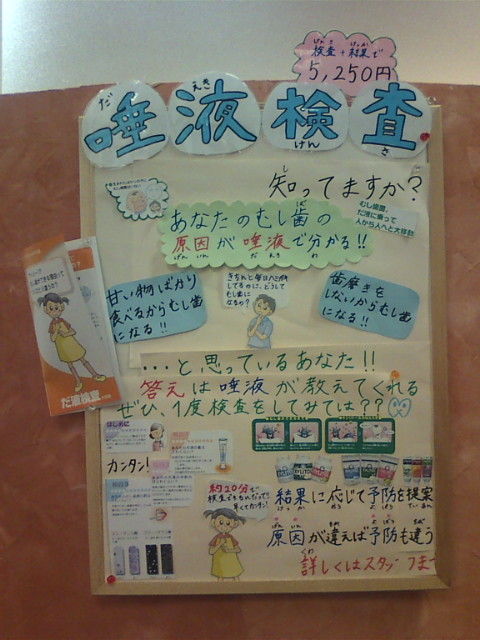 検査+結果で
5,250円
唾液検査
知ってますか?
むし歯菌、
だ液に乗って
人から人へと大移動
あなたのむし歯の
原因が唾液で分かる!!
甘い物ばかり
食べるからむし歯
になる!!
きちんと毎日ハミガキ
してるのに、どうして
むし歯に
なるの?
歯磨きを
しないからむし歯
になる!!
だ液検査
...と思っているあなた!!
答えは唾液が教えてくれる
ぜひ、1度検査をしてみては??
はじめに
カンタン!
約20分で
検査できちゃんだって!
早くてカンタン!
結果に応じて予防を提案
原因が違えば予防も違う
詳しくはスタッフまで